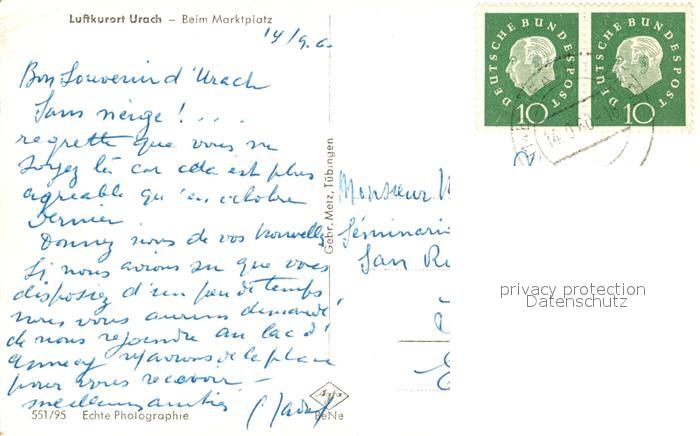 Luftkurort Urach – Beim Marktplatz
14/9.6
Bon Souvenir d'Urach
Sans neige ! ...
regrette que vous ne
soyez là car cela est plus
agréable qu'en octobre
dernier.
Donnez nous de vos nouvelles
Si nous avions su que vous
disposiez d'un peu de temps,
nous vous aurions demandé
de nous rejoindre au lac d'
Annecy nous avions de la place
pour vous recevoir –
meilleures amitiés
551/95 Echte Photographie
Gebr. Metz, Tübingen
Agfa
BeNe
DEUTSCHE BUNDESPOST
10
DEUTSCHE BUNDESPOST
10
14.9.60-16
Monsieur
Séminari
San R
privacy protection
Datenschutz